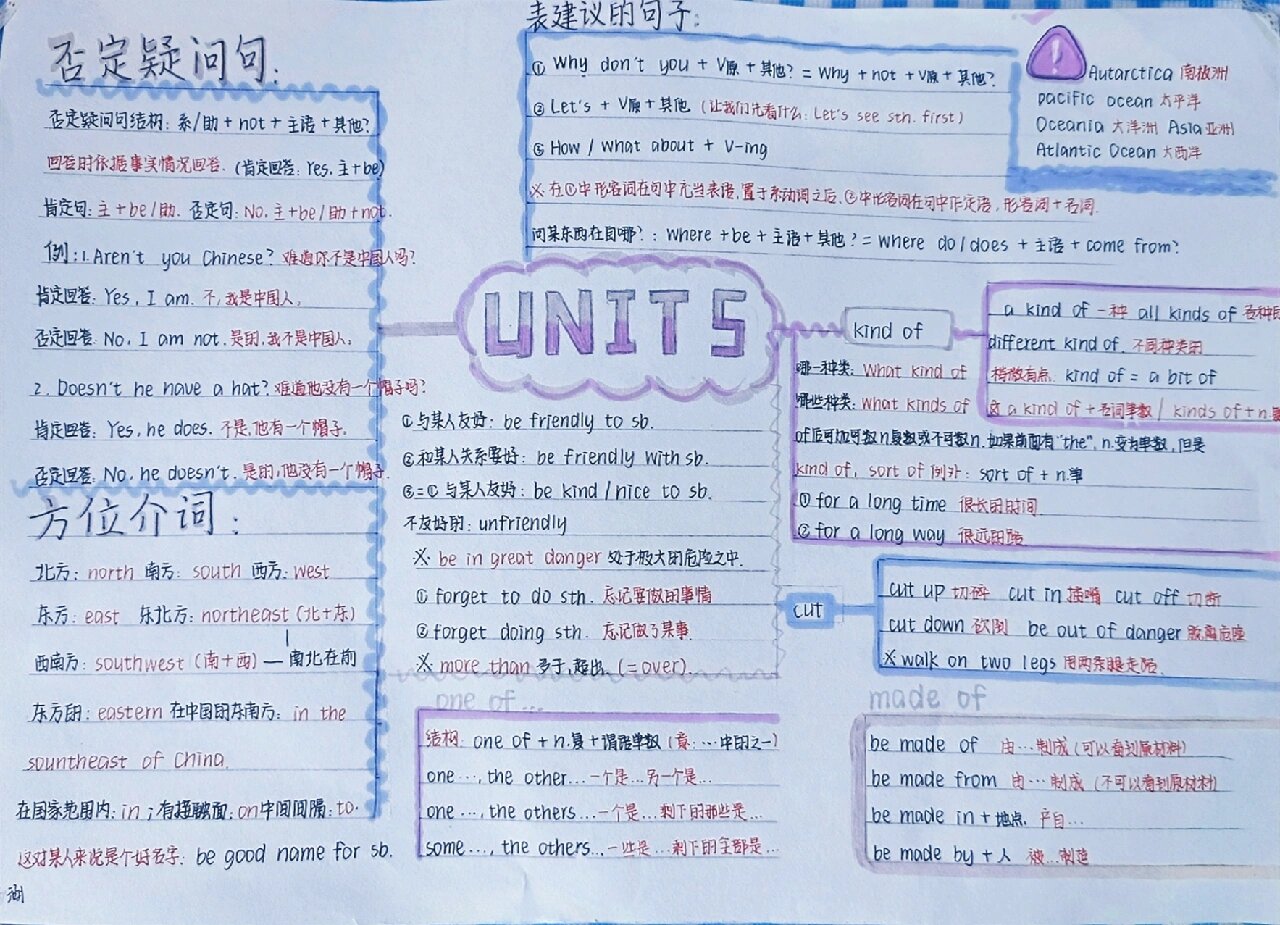 否定疑问句:
否定疑问句结构: 系/助+not+主语+其他?
回答时依据事实情况回答. (肯定回答: Yes, 主+be)
肯定句: 主+be/助. 否定句: No, 主+be/助+not.
例: 1. Aren't you Chinese? 难道你不是中国人吗?
肯定回答: Yes, I am. 不, 我是中国人.
否定回答: No, I am not. 是的, 我不是中国人.
2. Doesn't he have a hat? 难道他没有一个帽子吗?
肯定回答: Yes, he does. 不是, 他有一个帽子.
否定回答: No, he doesn't. 是的, 他没有一个帽子.
方位介词:
北方: north 南方: south 西方: west
东方: east 东北方: northeast (北+东)
西南方: southwest (南+西) — 南北在前
东方的: eastern 在中国的东南方: in the
sountheast of China.
在国家范围内: in ; 有接触面: on 中间间隔: to.
这对某人来说是个好名字: be good name for sb.
表建议的句子:
① Why don't you + V原 + 其他? = Why + not + V原 + 其他?
② Let's + V原 + 其他 (让我们先看什么: Let's see sth. first)
③ How / What about + V-ing
※ 在①中形容词在句中充当表语, 置于系动词之后. ②中形容词在句中作定语, 形容词+名词.
问某东西在自哪?: Where +be + 主语 + 其他? = where do/does + 主语 + come from?
Autarctica 南极洲
pacific ocean 太平洋
Oceania 大洋洲 Asia 亚洲
Atlantic Ocean 大西洋
UNIT 5
①与某人友好: be friendly to sb.
②和某人关系要好: be friendly with sb.
③=① 与某人友好: be kind/nice to sb.
不友好的: unfriendly
※ be in great danger 处于极大的危险之中.
① forget to do sth. 忘记要做的事情
② forget doing sth. 忘记做了某事.
※ more than 多于, 超出 (=over).
kind of
a kind of 一种 all kinds of 各种
different kind of. 不同种类的
稍微有点. kind of = a bit of
a kind of + 名词单数 / kinds of + n.
哪一种类: What kind of
哪些种类: What kinds of
of后可加可数n复数或不可数n. 如果前面有"the", n.变为单数, 但是
kind of, sort of 例外: sort of + n.单
① for a long time 很长的时间
② for a long way 很远的路
cut
cut up 切碎 cut in 插嘴 cut off 切断
cut down 砍倒 be out of danger 脱离危险
※ walk on two legs 用两条腿走路.
one of ...
结构: one of + n.复 + 谓语单数 (意: …中的之一)
one ..., the other... 一个是…另一个是…
one ..., the others... 一个是…剩下的那些是…
some ..., the others... 一些是…剩下的全部是…
made of
be made of 由…制成 (可以看到原材料)
be made from 由…制成 (不可以看到原材料)
be made in + 地点. 产自…
be made by + 人 被…制造